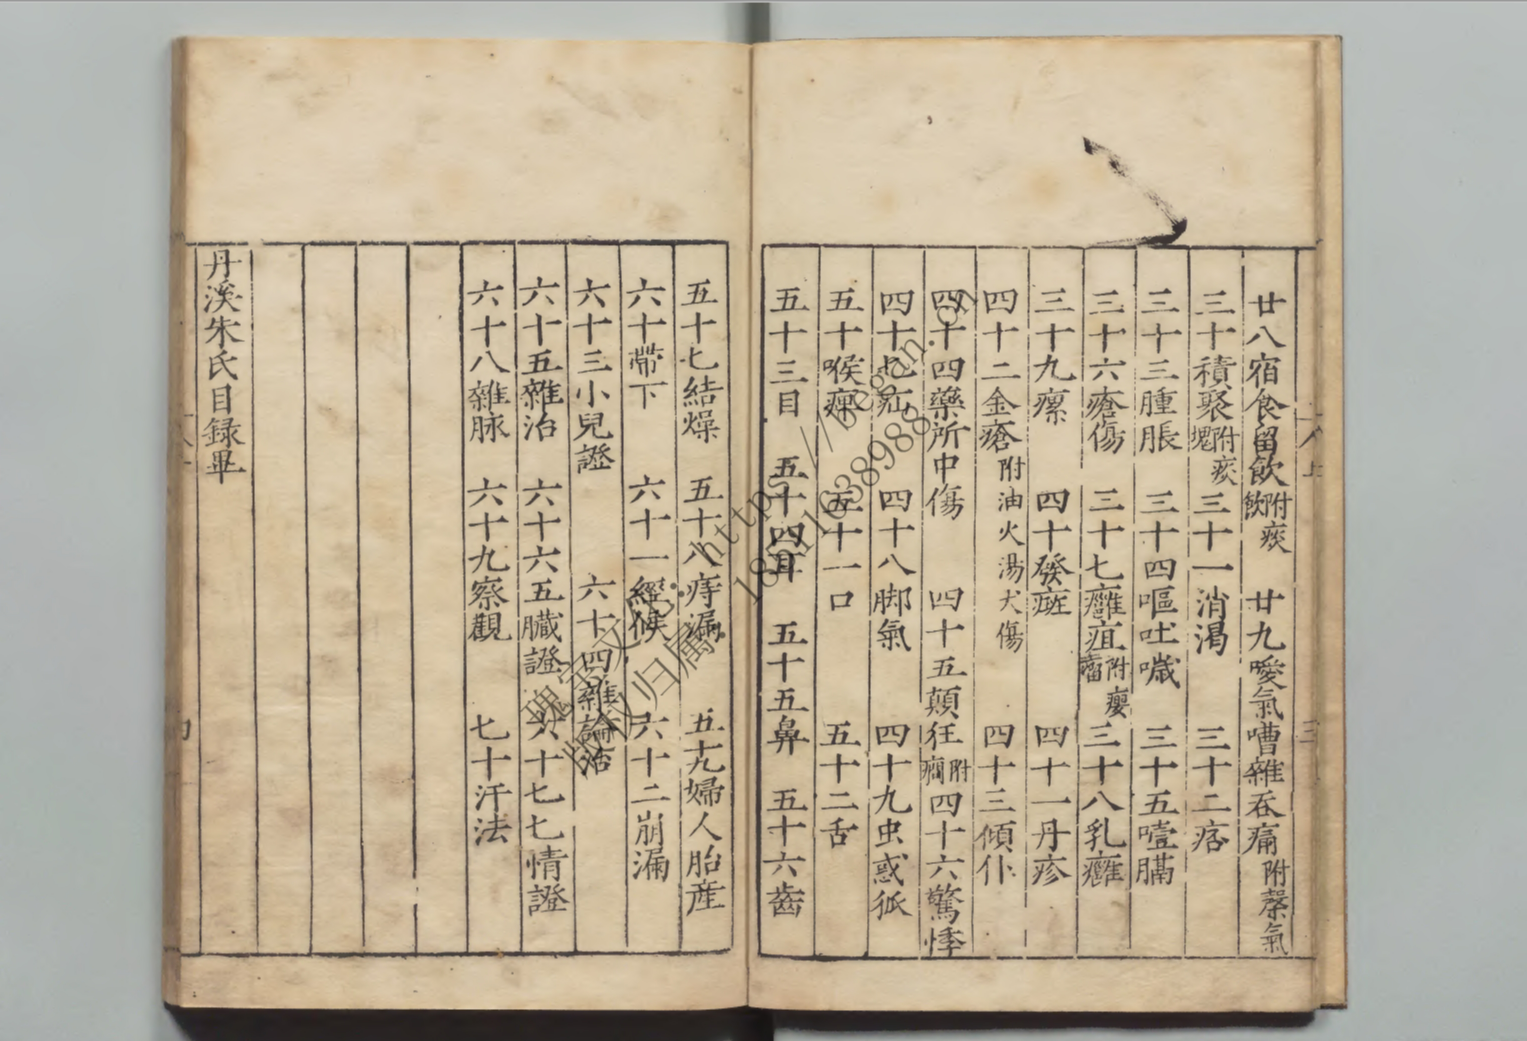 廿八宿食留飲附痰飲 廿九噯氣嘈雜吞痛附罄氣
三十積聚附痰塊 三十一消渴 三十二痞
三十三腫脹 三十四嘔吐噦 三十五噎膈
三十六瘡傷 三十七癰疽附癭瘤 三十八乳癰
三十九瘰 四十發斑 四十一丹疹
四十二金瘡附油火湯犬傷 四十三傾仆
四十四藥所中傷 四十五顛狂附癇 四十六驚悸
四十七疝 四十八脚氣 四十九虫惑狐
五十喉痺 五十一口 五十二舌
五十三目 五十四耳 五十五鼻 五十六齒
五十七結燥 五十八痔漏 五十九婦人胎産
六十帶下 六十一經候 六十二崩漏
六十三小兒證 六十四雜論治
六十五雜治 六十六五臟證 六十七七情證
六十八雜脉 六十九察觀 七十汗法
丹溪朱氏目録畢